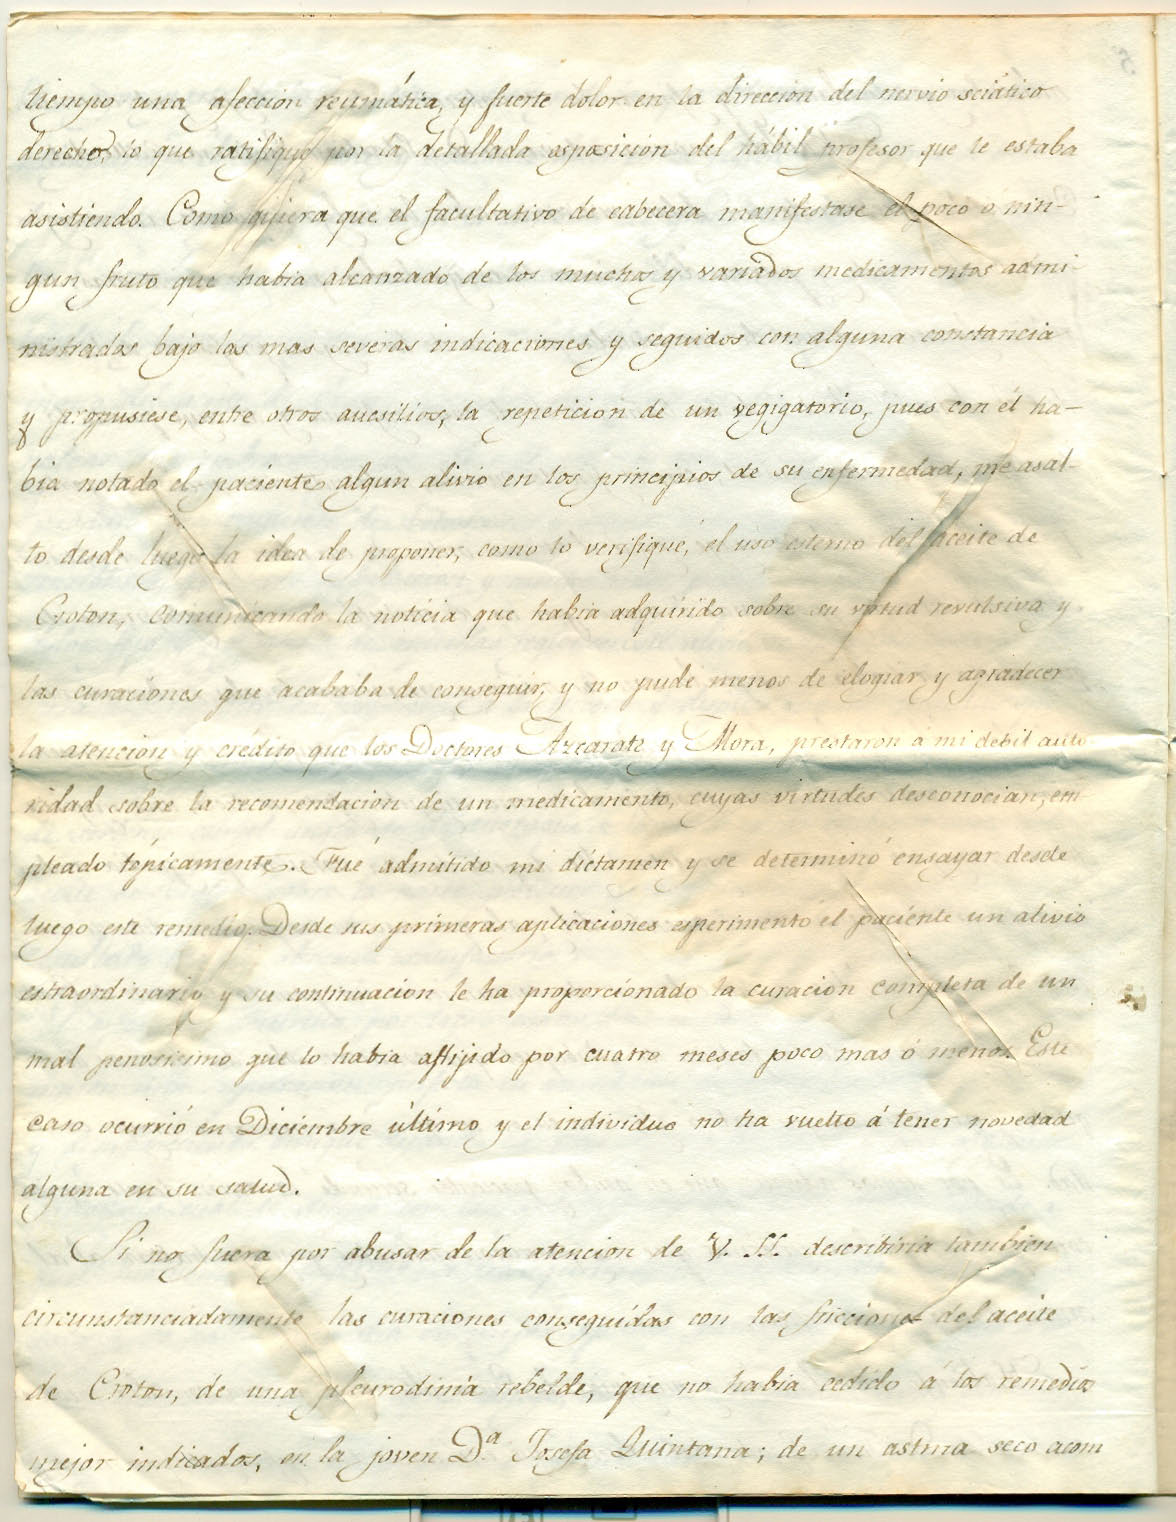 tiempo una afeccion reumática, y fuerte dolor en la direccion del nervio sciático
derecho, lo que ratifiqué por la detallada esposicion del hábil profesor que le estaba
asistiendo. Como quiera que el facultativo de cabecera manifestase el poco o nin-
gun fruto que habia alcanzado de los muchos y variados medicamentos admi-
nistrados bajo las mas severas indicaciones y seguidos con alguna constancia
y propusiese, entre otros aucsilios, la repeticion de un vegigatorio, pues con él ha-
bia notado el paciente algun alivio en los principios de su enfermedad, me asal-
to desde luego la idea de proponer, como lo verifiqué, el uso esterno del aceite de
Croton, comunicando la noticia que habia adquirido sobre su virtud revulsiva y
las curaciones que acababa de conseguir, y no pude menos de elogiar y agradecer
la atencion y crédito que los Doctores Azcarate y Mora, prestaron á mi debil auto
ridad sobre la recomendacion de un medicamento, cuyas virtudes desconocian, em
pleado tópicamente. Fué admitido mi dictamen y se determinó ensayar desde
luego este remedio. Desde sus primeras aplicaciones esperimentó el paciente un alivio
estraordinario y su continuacion le ha proporcionado la curacion completa de un
mal penosisimo que lo habia aflijido por cuatro meses poco mas ó menos. Este
caso ocurrió en Diciembre último y el individuo no ha vuelto á tener novedad
alguna en su salud.
Si no fuera por abusar de la atencion de V. SS. describiria tambien
circunstanciadamente las curaciones conseguidas con las fricciones del aceite
de Croton, de una pleurodinia rebelde, que no habia cedido á los remedios
mejor indicados, en la joven D.ª Josefa Quintana; de un astma seco acom